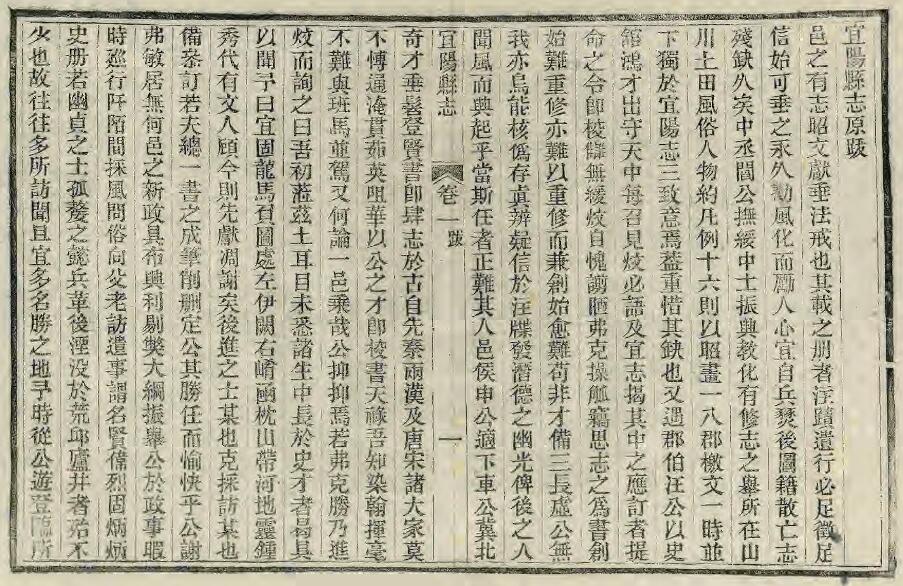 宜陽縣志原跋
邑之有志昭文獻垂法戒也其載之册者往蹟遺行必足徵足
信始可垂之永久勷風化而勵人心宜自兵燹後圖籍散亡志
殘缺久矣中丞閻公撫綏中土振興教化有修志之舉所在山
川土田風俗人物約凡例十六則以昭畫一八郡檄文一時並
下獨於宜陽志三致意焉葢重惜其缺也又遇郡伯汪公以史
舘鴻才出守天中每召見炆必語及宜志揭其中之應訂者提
命之令卽梭讎無緩炆自愧謭陋弗克操觚竊思志之爲書創
始難重修亦難以重修而兼創始愈難苟非才備三長虛公無
我亦烏能核僞存眞辨疑信於汪牒發潛德之幽光俾後之人
聞風而興起乎當斯任者正難其人邑侯申公適下車公冀北
宜陽縣志 卷一 跋 一
奇才垂髫登賢書卽肆志於古自先秦兩漢及唐宋諸大家莫
不慱通淹貫茹英咀華以公之才卽梭書天祿吾知染翰揮毫
不難與班馬並駕又何論一邑乘哉公抑抑焉若弗克勝乃進
炆而詢之曰吾初蒞茲土耳目未悉諸生中長於史才者曷具
以聞予曰宜固龍馬召圖處左伊闕右崤函枕山帶河地靈鍾
秀代有文人顧今則先獻凋謝矣後進之士某也克採訪某也
備叅訂若夫總一書之成筆削刪定公其勝任而愉快乎公謝
弗敏居無何邑之新政具布興利剔獘大綱振舉公於政事暇
時廵行阡陌間採風問俗向父老訪遺事謂名賢偉烈固炳炳
史册若幽貞之士孤嫠之懿兵革後湮没於荒邱廬井者殆不
少也故往往多所訪聞且宜多名勝之地予時從公遊登臨所